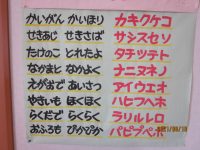 かいがん かいほり カキクケコ
せきあじ せきさば サシスセソ
たけのこ とれたよ タチツテト
なかまと なかよく ナニヌネノ
えがおで あいさつ アイウエオ
やきいも ほくほく ハヒフヘホ
らくだで らくらく ラリルレロ
おふろも ぴかぴか パピプペポ